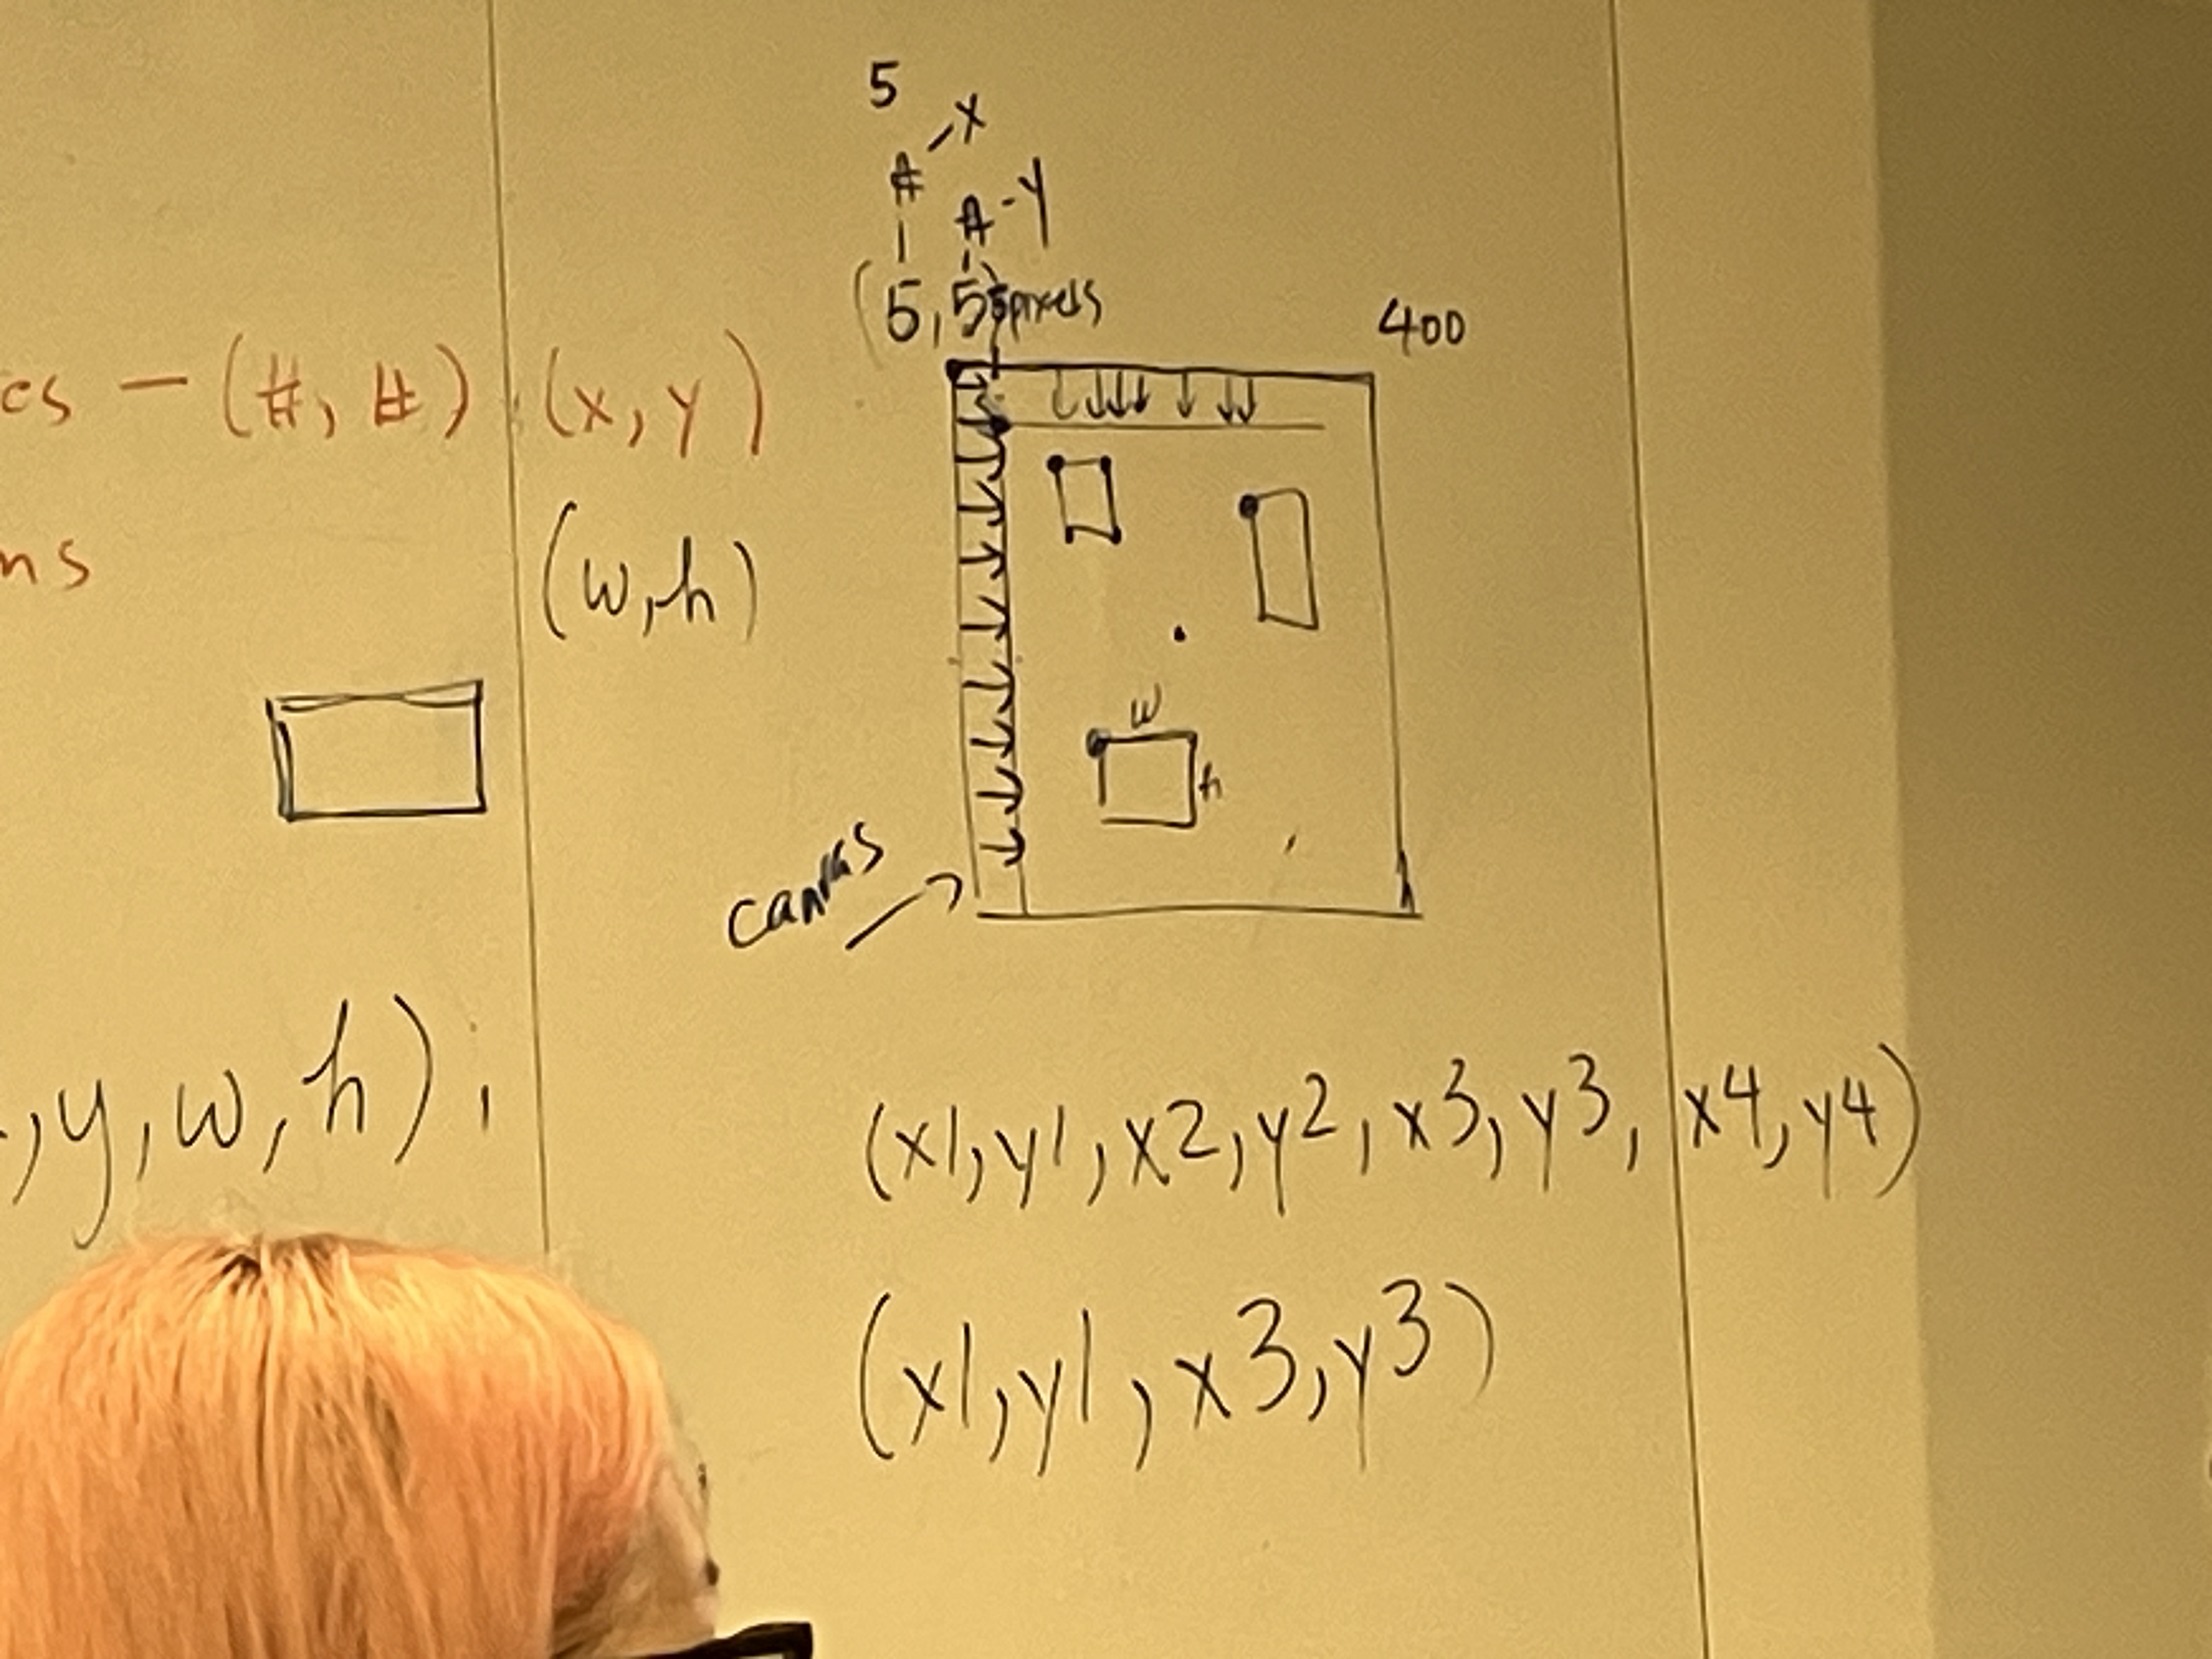 5
# - x
# - y
(5, 5) 5pixels
400
cs - (#, #) (x, y)
ns
(w, h)
w
h
canvas
, y, w, h);
(x1, y1, x2, y2, x3, y3, x4, y4)
(x1, y1, x3, y3)